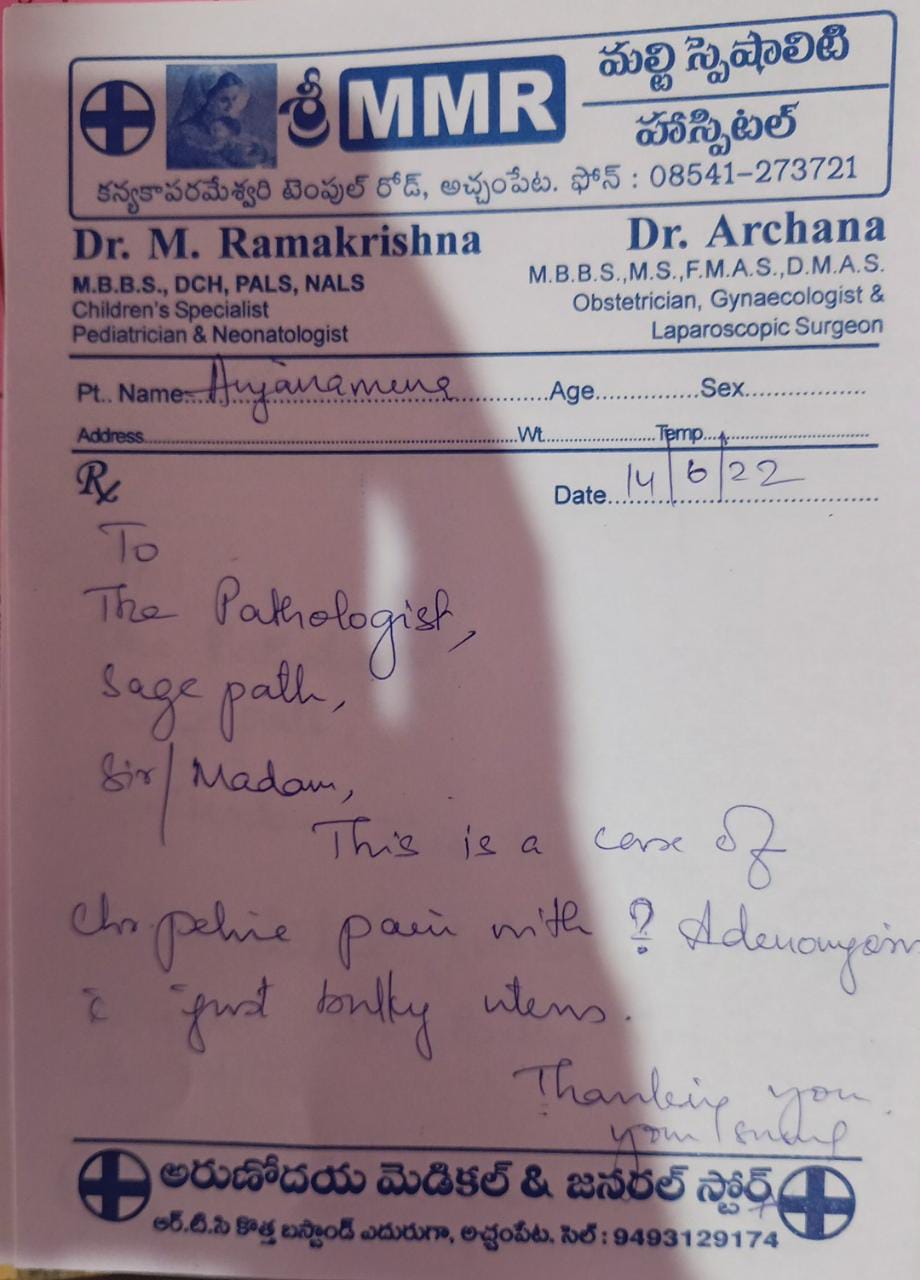 శ్రీ MMR మల్టి స్పెషాలిటి
హాస్పిటల్
కన్యకాపరమేశ్వరి టెంపుల్ రోడ్, అచ్చంపేట. ఫోన్ : 08541-273721
Dr. M. Ramakrishna
M.B.B.S., DCH, PALS, NALS
Children's Specialist
Pediatrician & Neonatologist
Dr. Archana
M.B.B.S.,M.S.,F.M.A.S.,D.M.A.S.
Obstetrician, Gynaecologist &
Laparoscopic Surgeon
Pt.. Name: Age Sex
Address Wt Temp
Rx
Date 14/6/22
To
The Pathologist,
Sage path,
Sir/Madam,
This is a case of
Chr. pelvic pain with ? Adenomyosis
c̄ just bulky uterus.
Thanking you.
అరుణోదయ మెడికల్ & జనరల్ స్టోర్స్
ఆర్.టి.సి కొత్త బస్టాండ్ ఎదురుగా, అచ్చంపేట. సెల్ : 9493129174